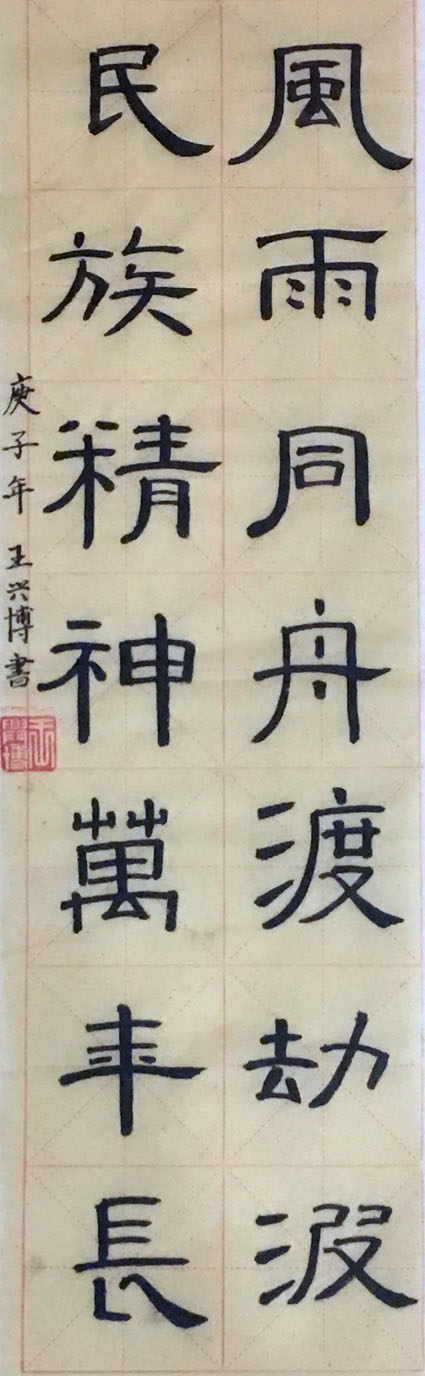 風雨同舟渡劫波
民族精神萬年長
庚子年 王兴博書